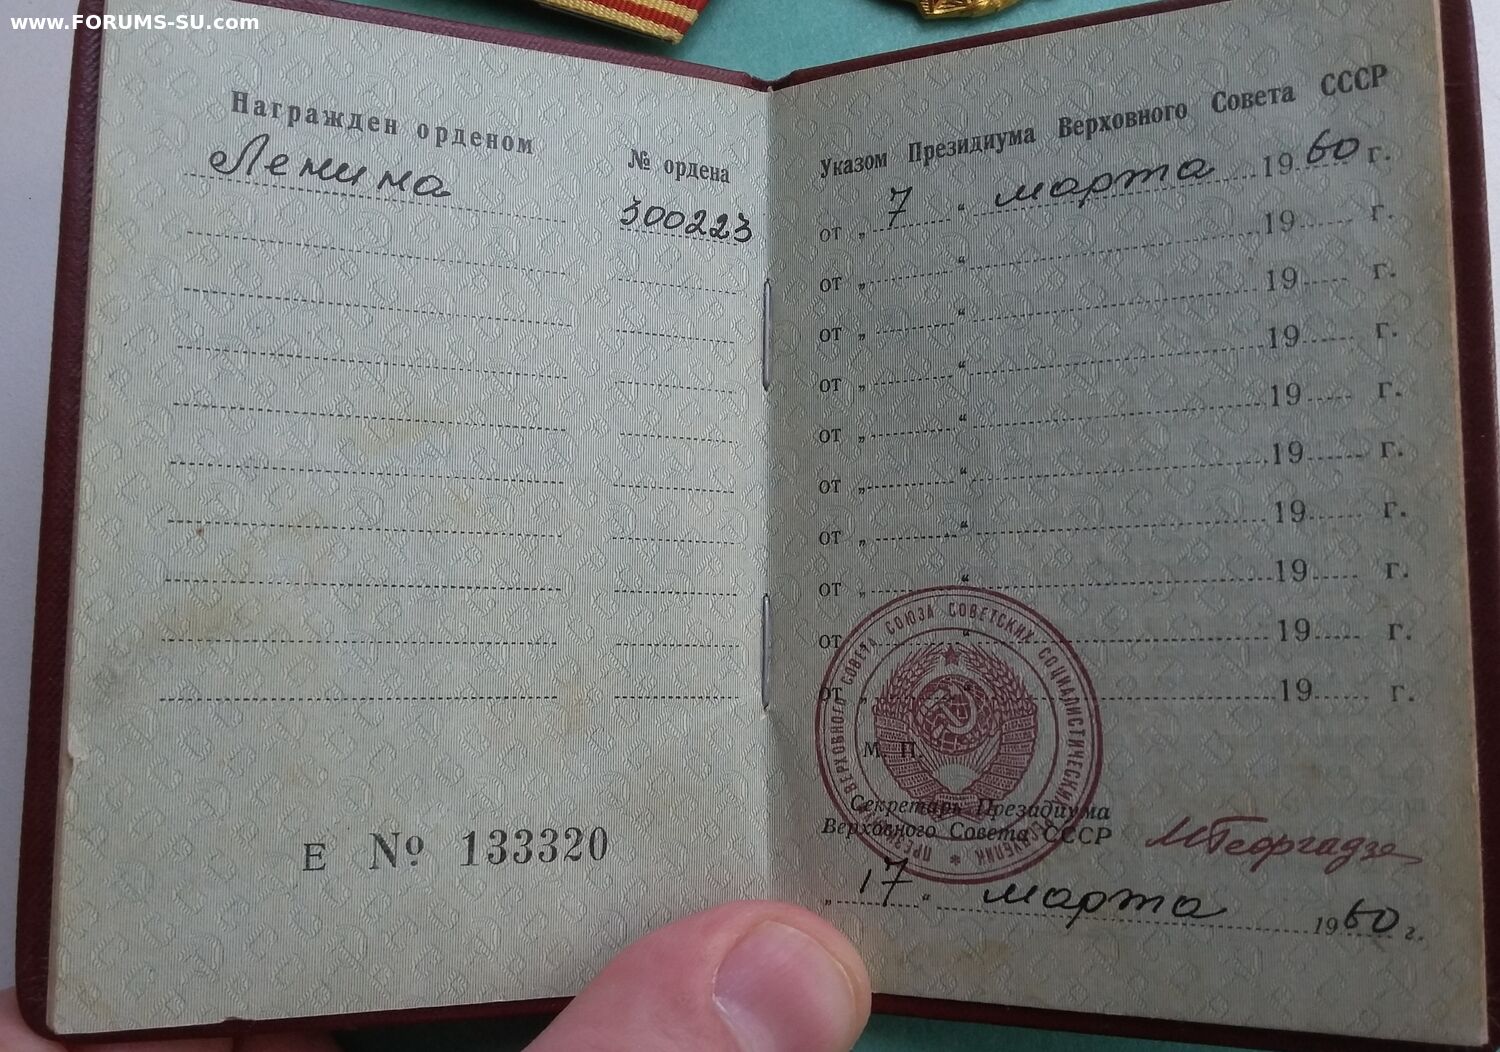 www.FORUMS-SU.com
Награжден орденом
№ ордена
Ленина
300223
Е № 133320
Указом Президиума Верховного Совета СССР
от „ 7 “ марта 1960 г.
от „ “ 19 г.
от „ “ 19 г.
от „ “ 19 г.
от „ “ 19 г.
от „ “ 19 г.
от „ “ 19 г.
от „ “ 19 г.
от „ “ 19 г.
от „ “ 19 г.
ПРЕЗИДИУМ ВЕРХОВНОГО СОВЕТА СОЮЗА СОВЕТСКИХ СОЦИАЛИСТИЧЕСКИХ РЕСПУБЛИК
М. П.
Секретарь Президиума
Верховного Совета СССР
МГеоргадзе
„ 17 “ марта 1960 г.